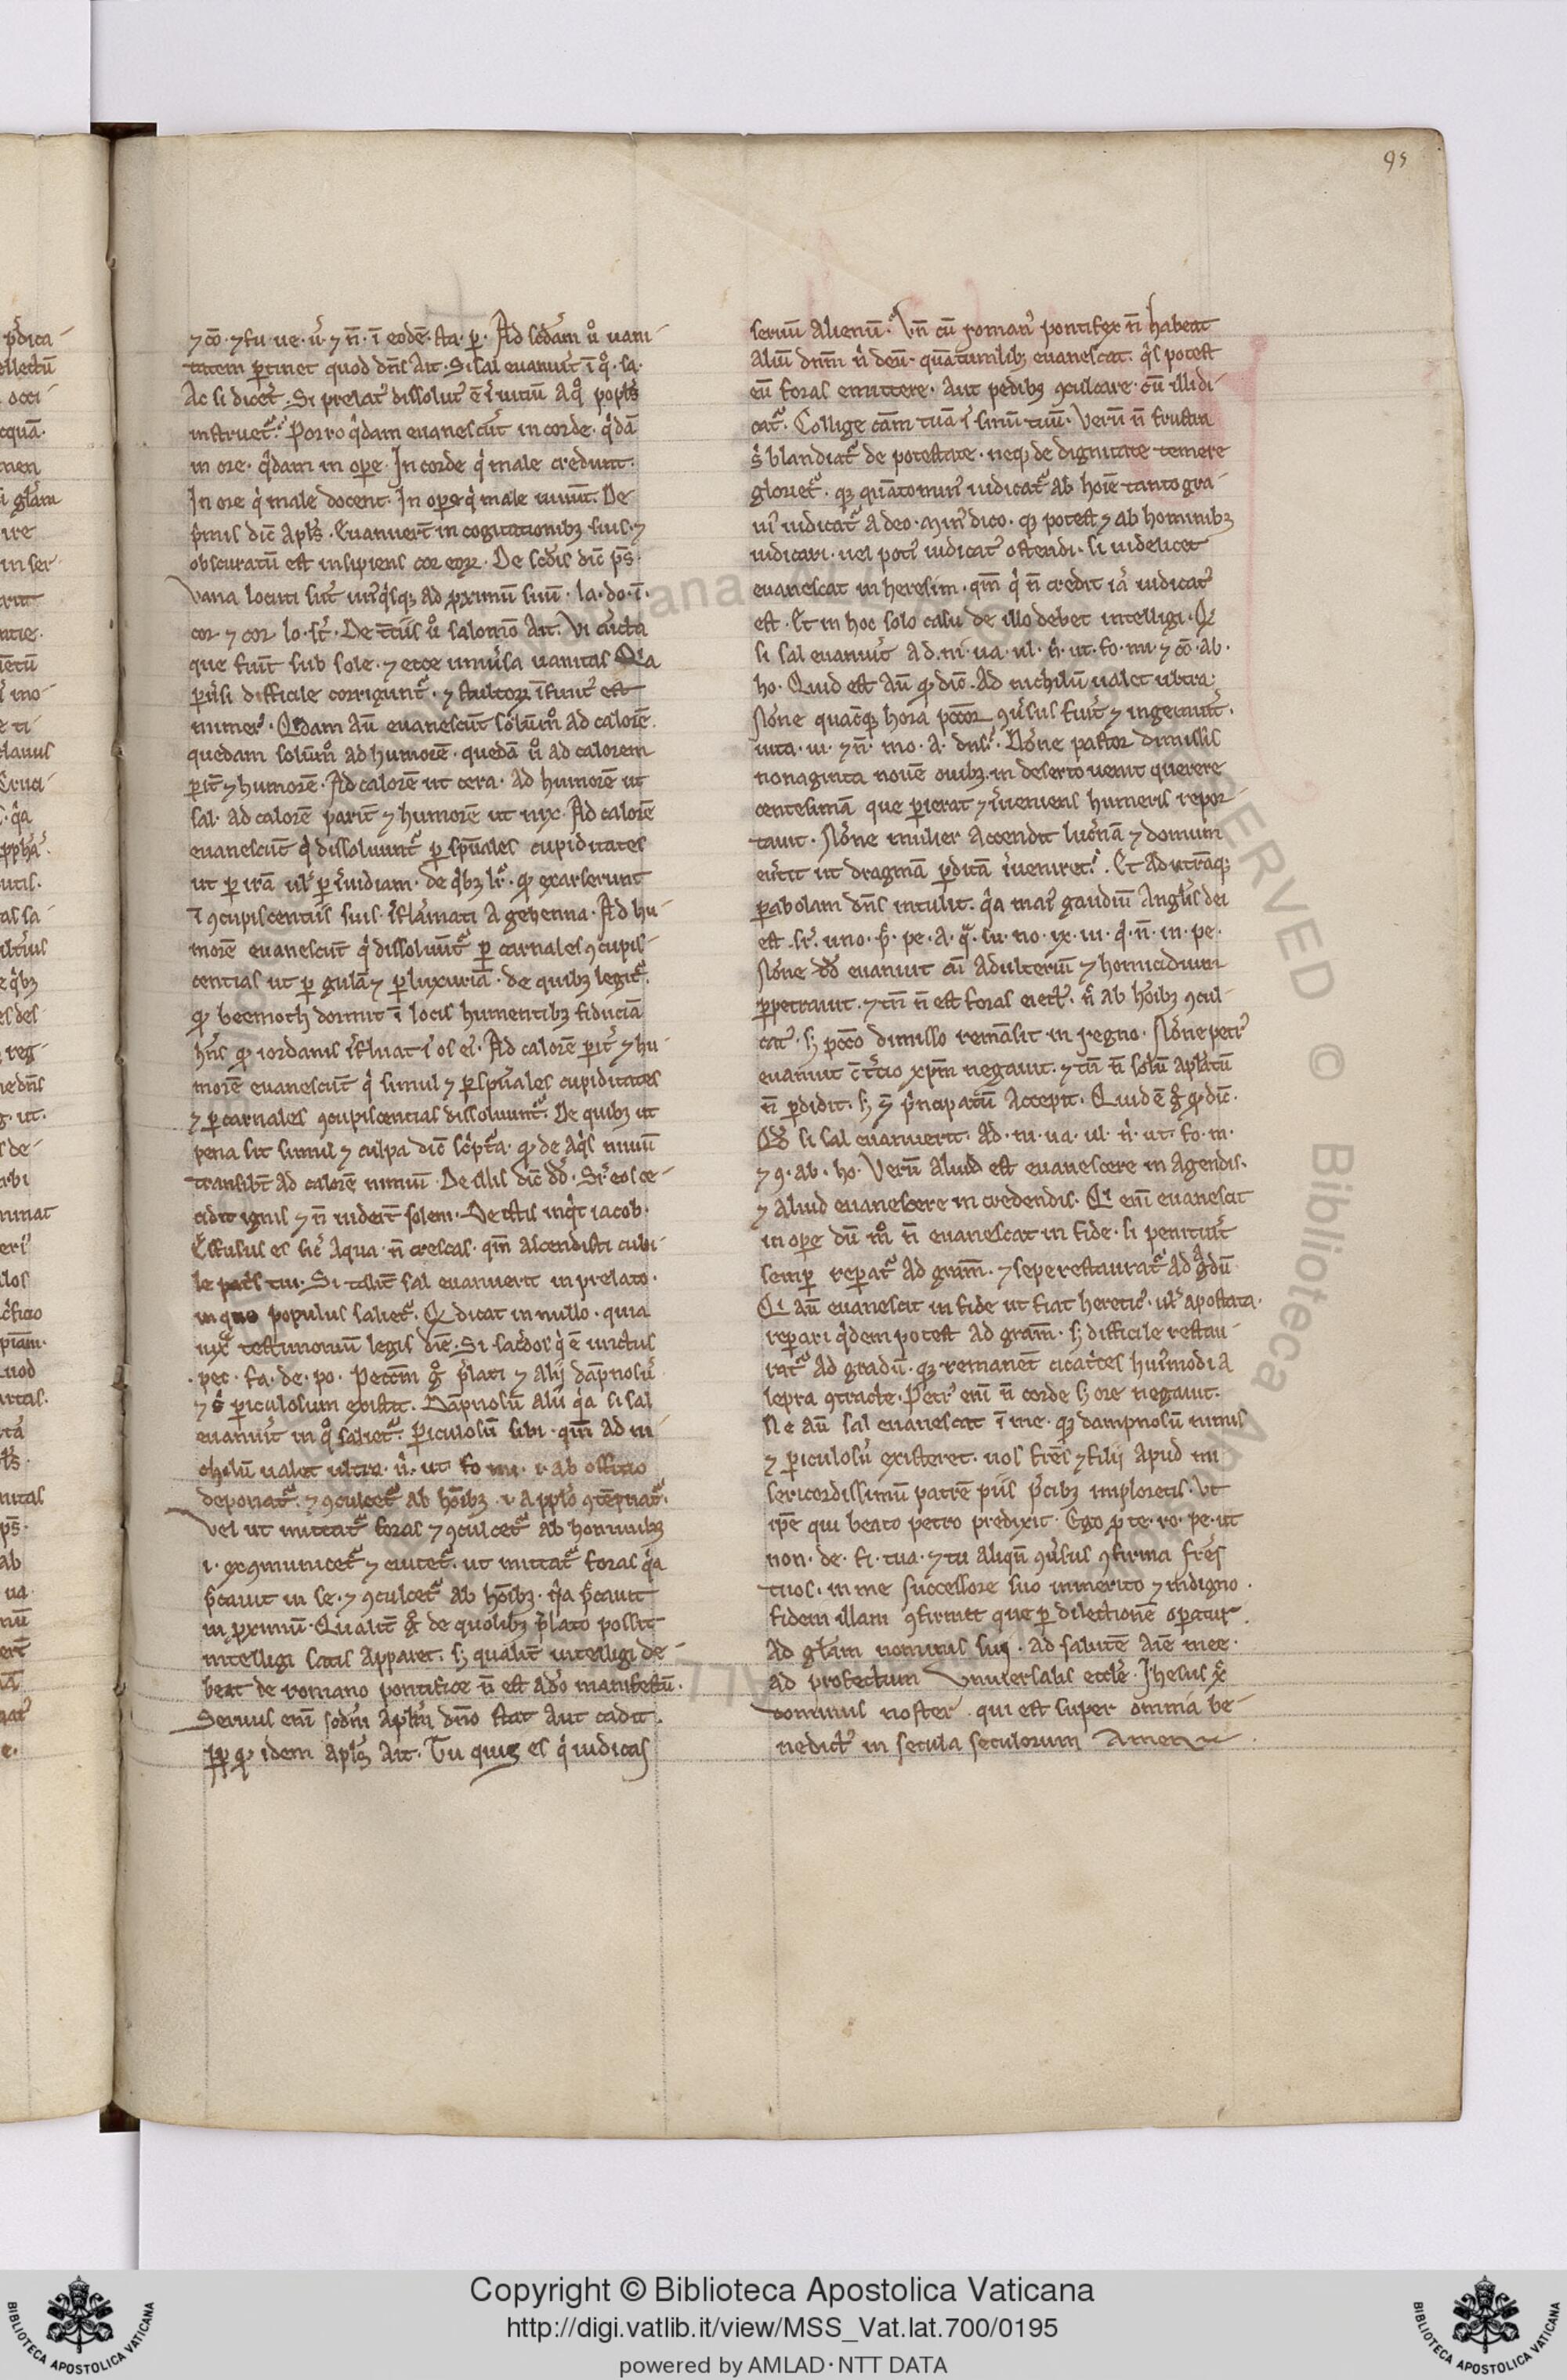 95
⁊ cō · ⁊ fu · ue · ū · ⁊ n̄ · ī eodē · sta · p̱ · Ad scd̄am ů uani-
tatem ꝑtinet quod dn̄s Ait · Si sal euanuit̄ ī q̊ · sa ·
Ac si dicet̄ · Si prelat᷒ dissolut᷒ ē ī uitiū A q̊ popl̄s
instruet᷑ Porro q̇dam euanescūt in corde · q̇dā
in ore · q̇dam in ope · In corde q̇ male credunt ·
In ore q̇ male docent · In ope q̇ male uiuūt · De
ṗmis dic̄ Apl̄s · Euanuert̄ in cogitationibꝫ suis · ⁊
obscuratū est insipiens cor eoꝝ · De scd̄is dic̄ p̄s ·
Vana locuti sūt un᷒q̇sqꝫ ad ꝓximū suū · la · do · ī ·
cor ⁊ cor lo · st̄ · De t̄tiis ů salomō Ait · Vi cūcta
que fiūt sub sole · ⁊ ecce uniũsa uanitas
ꝑũsi difficile corrigunt᷑ · ⁊ stultoꝝ īfinit᷒ est
numer᷒ · Q̇dam Aū euanescūt solūm̊ ad calorē
quedam solūm̊ ad humorē · quedā ů ad calorem
ꝑit̄ ⁊ humorē · Ad calorē ut cera · Ad humorē ut
sal · ad calorē parit̄ ⁊ humorē ut nix · Ad calorē
euanescūt q̇ dissoluunt᷑ ꝑ spūales cupiditates
ut ꝑ irā ul̄ ꝑ īuidiam · de q̇bꝫ lr̄ · ꝙ exarserunt
ī ꝯcupiscentiis suis · īflāmati A gehenna · Ad hu-
morē euanescūt q̇ dissoluūt᷑ ꝑ carnales ꝯcupis-
centias ut ꝑ gulā ⁊ ꝑ luxuriā · de quibꝫ legit᷑
ꝙ beemoth dormit ī locis humentibꝫ fiduciā
hn̄s ꝙ iordanis īfluat ī os ei᷒ · Ad calorē ꝑit̄ ⁊ hu-
morē euanescūt q̇ simul ⁊ ꝑ spūales cupiditates
⁊ ꝑ carnales ꝯcupiscencias dissoluunt᷑ · De quibꝫ ut
pena sit simul ⁊ culpa dic̄ sc̄pt̄a · ꝙ de Aq̇s niuiū
transibt̄ ad calorē nimiū · De illis dic̄ dd̄ · Sr̄ eos ce-
cidit ignis ⁊ n̄ uidert̄ solem · De istis inq̇t iacob ·
Effusus es sic̄ Aqua · n̄ crescas · qm̄ Ascendisti cubi-
le pat̄s tui · Si talit̄ sal euanuerit in prelato ·
in quo populus saliet᷑ · Qͥ dicat in nullo · quia
iux̄ testimoniū legis diē · Si sac̄dos q̇ ē unctus
pec · fa · de · po · Pecc̄m g̊ p̄lati ⁊ Alij dāpnosū
⁊ s̄ periculosum existit · Dāpnosū alii q̇a si sal
euanuit̄ in q̊ saliet᷑ · Periculosū sibi · qm̄ ad ni
chilū ualet ultra · n̄ · ut fo mi · i · ab officio
deponat᷑ · ⁊ ꝯculcet᷑ ab hōibꝫ · i · A pplō ꝯtēpnat᷑ ·
Vel ut mittat᷑ foras ⁊ ꝯculcet᷑ ab hominibꝫ
i · exꝯmunicet᷑ ⁊ euitet᷑ · ut mittat᷑ foras q̇a
p̄cauit in se · ⁊ ꝯculcet᷑ ab hōibꝫ · q̇a p̄cauit
in ꝓximū · Qualit̄ g̊ de quolibꝫ p̄lato possit
intelligi satis Apparet · sꝫ qualit̄ intelligi de-
beat de romano pontifice n̄ est ado manifestū ·
Seruus eni᷒ sc̄dm Apl̄m dn̄o stat Aut cadit ·
ꝓp̱ ꝙ idem apl̄s Ait · Tu quis es q̇ iudicas
seruū Alienū · Vn̄ cū roman᷒ pontifex n̄ habeat
aliū dn̄m n̄ deū · quātumlibꝫ euanescat · q̇s potest
eū foras emittere · Aut pedibꝫ ꝯculcare · cū illi di-
cat᷑ · Collige cām tuā ī sinū tuū · Verū n̄ frustra
s̄ blandiat᷑ de potestate · neqꝫ de dignitate temere
gloriet᷑ · qꝫ quāto min᷒ iudicat᷑ Ab hoīe tanto gra-
ui᷒ iudicat᷑ A deo · Min᷒ dico · qꝫ potest ⁊ ab hominibꝫ
iudicari · uel poti᷒ iudicat᷒ ostendi · si uidelicet
euanescat in heresim · qm̄ q̇ n̄ credit iā iudicat᷒
est · Et in hoc solo casu de illo debet intelligi · Qͥ
si sal euanuit̄ ad · ni · ua · ul · n̄ · ut · fo · mi · ⁊ cō · ab ·
ho · Quid est Aū ꝙ dic̄ · Ad nichilū ualet ultra ·
Nōne quac̄qꝫ hora pcc̄or ꝯũsus fuit̄ ⁊ ingemuit̄ ·
uita · ui · ⁊ n̄ · mo · A · dn̄s · Nōne pastor dimissis
nonaginta nouē ouibꝫ in deserto uenit querere
centesimā que ꝑierat ⁊ īueniens humeris repor-
tauit · Nōne mulier Accendit luc̄nā ⁊ domum
eũtit ut dragmā ꝑditā īueniret · Et ad utrāqꝫ
ꝑabolam dn̄s intulit · q̇a mai᷒ gaudiū Angl̄is dei
est · sr̄ · uno · p̄ · pe · A · q᷑ · su · no · ix · iu · q̇ · n̄ · in · pe ·
Nōne dd̄ euanuit cū Adulteriū ⁊ homicidium
ꝑpetrauit · ⁊ tn̄ n̄ est foras eiect᷒ · n̄ Ab hōibꝫ ꝯcul-
cat᷒ · sꝫ pcc̄o dimisso remāsit in regno · Nōne petr᷒
euanuit c̄ t̄tio xp̄m negauit · ⁊ tn̄ n̄ solū apl̄atū
n̄ ꝑdidit · sꝫ ⁊ p̄ncipatū Accepit · Quid ē g̊ ꝙ dic̄ ·
Qd̄ si sal euanuerit · Ad · ni · ua · ul · n̄ · ut · fo · m ·
⁊ ꝯ · ab · ho · Verū aliud est euanescere in Agendis ·
⁊ Aliud euanescere in credendis · Qͥ eni᷒ euanescit
in ope dū m̊ n̄ euanescat in fide · si penituit̄
semꝑ reperat᷑ Ad gram̄ · ⁊ sepe restaurat᷑ Ad g̊dū
Qͥ aū euanescit in fide ut fiat heretic᷒ · ul̄ apostata ·
reꝑari q̇dem potest ad gram̄ · sꝫ difficile restau-
rat᷑ ad gradū · qꝫ remanēt cicat̄ces hui᷒modi A
lepra ꝯtracte · Petr᷒ eni᷒ n̄ corde sꝫ ore negauit ·
Ne aū sal euanescat ī me · qꝫ dampnosū nimis
⁊ ꝑiculosū existeret · uos fr̄es ⁊ filij apud mi
sericordissimū patrē piis p̄cibꝫ imploretis · Vt
ip̄e qui beato petro predixit · Ego ꝓ te · ro · pe · ut
non · de · fi · tua · ⁊ tu aliqn̄ ꝯũsus ꝯfirma fr̄es
tuos · in me successore suo inmerito ⁊ indigno ·
fidem illam ꝯfirmet que ꝑ dilectionē opatur ·
Ad gl̄am nominis sui · ad salutē Aīe mee ·
ad profectum Vniuersalis eccl̄e · Jhesus xp̄c
dominus noster qui est super omnia be-
nedict᷒ in secula seculorum Amen
Copyright © Biblioteca Apostolica Vaticana
http://digi.vatlib.it/view/MSS_Vat.lat.700/0195
powered by AMLAD·NTT DATA
BIBLIOTECA APOSTOLICA VATICANA
BIBLIOTECA APOSTOLICA VATICANA